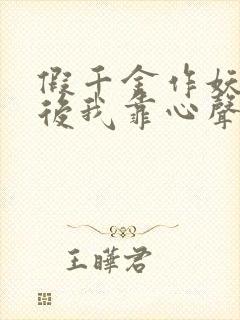 假千金作妖
後我靠心聲
王曄君